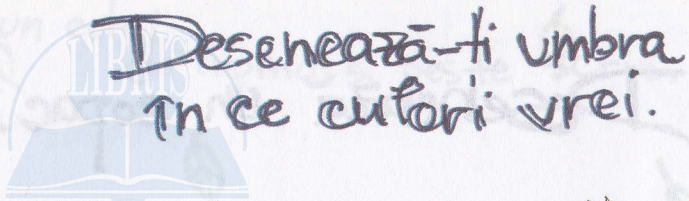 Desenează-ti umbra
în ce culori vrei.
LIBRIS